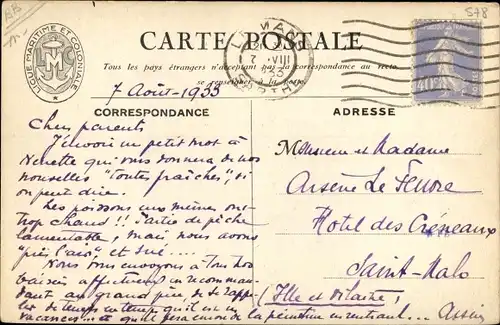 578
LIGUE MARITIME ET COLONIALE
CARTE POSTALE
Tous les pays étrangers n'acceptent pas la correspondance au recto
se renseigner à la poste
7 Août - 1933
CORRESPONDANCE
ADRESSE
Chers parents
J'envoie un petit mot à
Nénette qui vous donnera de nos
nouvelles "toutes fraîches", si
on peut dire.
Les poissons eux mêmes ont
trop chaud !! Partie de pêche
lamentable, mais nous avons
"pris l'air" et sué....
Nous vous envoyons à tous nos
baisers affectueux en recommandant
au grand père, de se rappeler
de temps en temps qu'il est en
vacances... 
Monsieur et Madame
Arsène Le Feuvre
Hotel des Créneaux
Saint-Malo
(Ille et Vilaine)